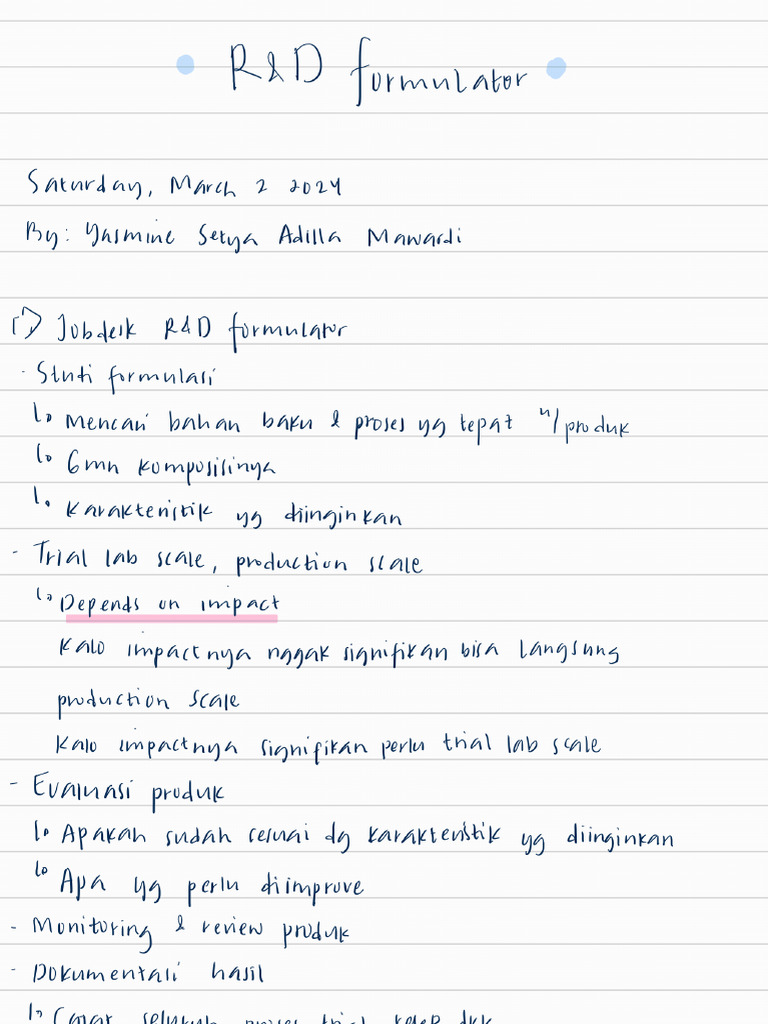 R&D formulator
Saturday, March 2 2024
By: Yasmine Setya Adilla Mawardi
1) Jobdesk R&D formulator
- Studi formulasi
↳ Mencari bahan baku & proses yg tepat u/ produk
↳ Gmn komposisinya
↳ Karakteristik yg diinginkan
- Trial lab scale, production scale
↳ Depends on impact
Kalo impactnya nggak signifikan bisa langsung
production scale
Kalo impactnya signifikan perlu trial lab scale
- Evaluasi produk
↳ Apakah sudah sesuai dg karakteristik yg diinginkan
↳ Apa yg perlu diimprove
- Monitoring & review produk
- Dokumentasi hasil
↳ Catat seluruh proses trial